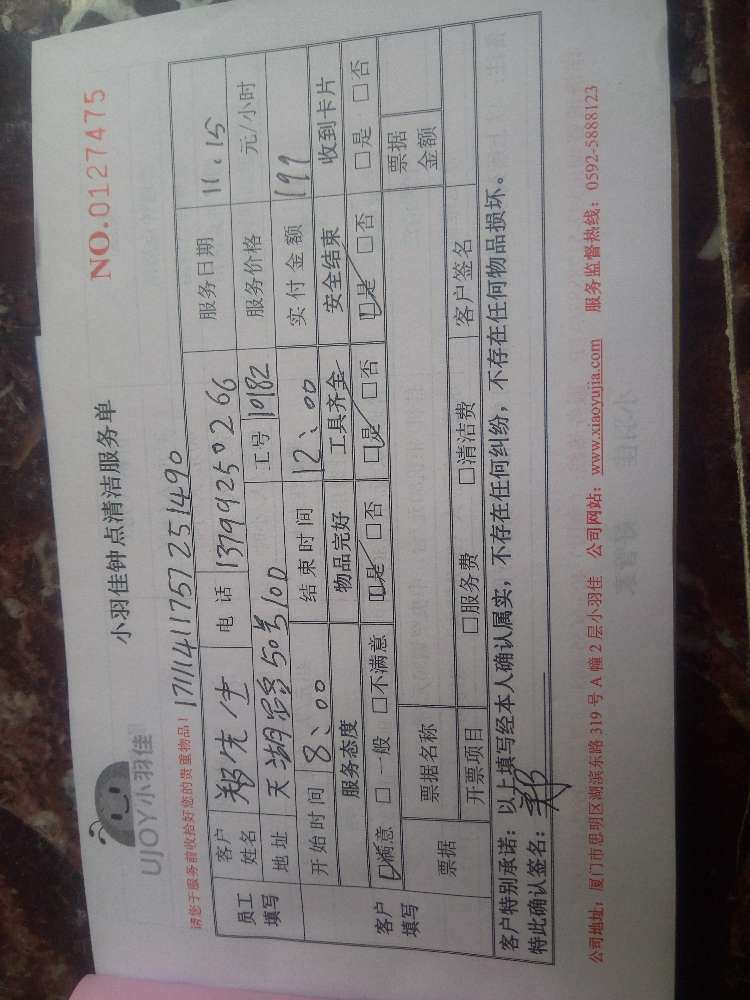 UJOY小羽佳
小羽佳钟点清洁服务单
NO.0127475
请您于服务前收拾好您的贵重物品！
1711141175725​1490
员工填写 客户姓名 郑先生 电话 13799250266 服务日期 11.15
地址 天湖路50号100 工号 10182 服务价格 元/小时
开始时间 8:00 结束时间 12:00 实付金额 199
客户填写 服务态度 物品完好 工具齐全 安全结束 收到卡片
☑满意 □一般 □不满意 ☑是 □否 ☑是 □否 ☑是 □否 □是 □否
票据 票据名称 票据金额
开票项目 □服务费 □清洁费 客户签名
客户特别承诺：以上填写经本人确认属实，不存在任何纠纷，不存在任何物品损坏。
特此确认签名：郑
公司地址：厦门市思明区湖滨东路 319 号 A 幢 2 层小羽佳 公司网站：www.xiaoyujia.com 服务监督热线：0592-5888123